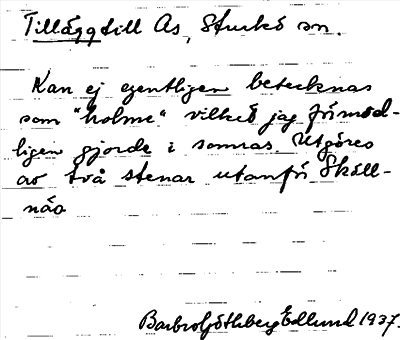 Tillägg till As, Sturkö sn.
Kan ej egentligen betecknas
som "holme" vilket jag förmod-
ligen gjorde i somras. Utgöres
av två stenar utanför Sköll-
näs
Barbro Götlberg Edlund 1937.